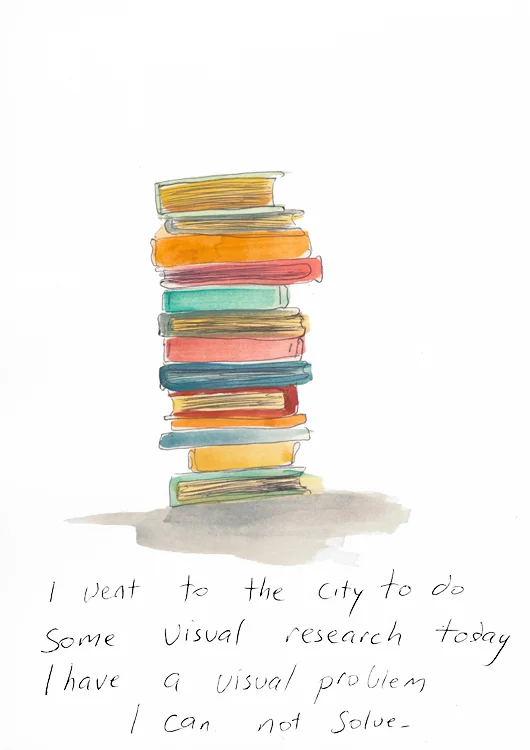 I went to the city to do
Some visual research today
I have a visual problem
I can not solve-